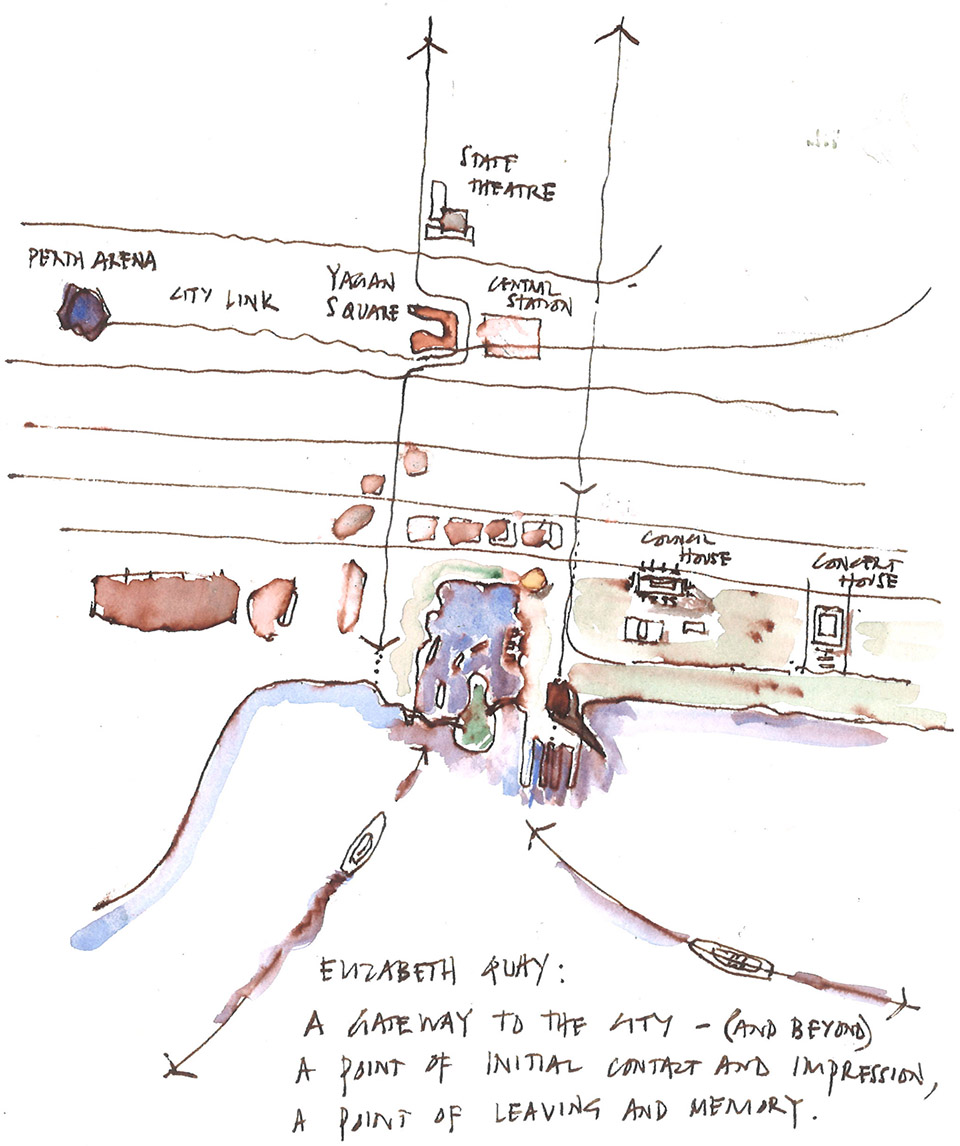 STATE
THEATRE
PERTH ARENA
CITY LINK
YAGAN
SQUARE
CENTRAL
STATION
COUNCIL
HOUSE
CONCERT
HOUSE
ELIZABETH QUAY:
A GATEWAY TO THE CITY - (AND BEYOND)
A POINT OF INITIAL CONTACT AND IMPRESSION,
A POINT OF LEAVING AND MEMORY.